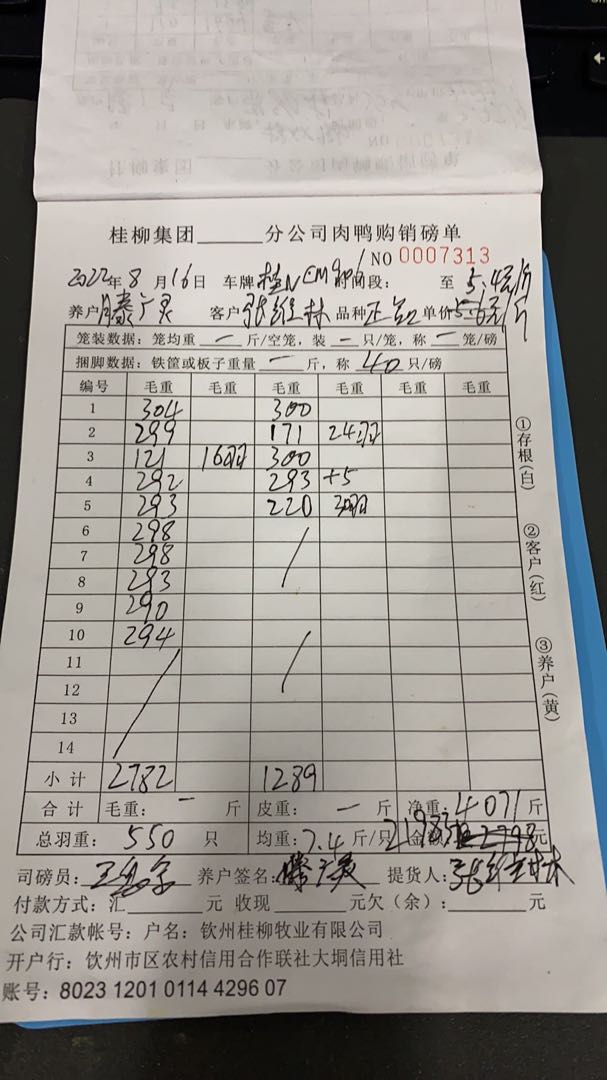 桂柳集团______分公司肉鸭购销磅单
NO 0007313
2022年8月16日 车牌 桂N 时间段: 至 5.4元/斤
养户 滕广灵 客户 张维林 品种 单价 5.6元/斤
笼装数据: 笼均重 一 斤/空笼, 装 一 只/笼, 称 一 笼/磅
捆脚数据: 铁筐或板子重量 一 斤, 称 40 只/磅
编号 毛重 毛重 毛重 毛重 毛重 毛重
1 304 300
2 299 171 24羽
3 121 16羽 300
4 292 293 +5
5 293 220 30羽
6 298
7 298
8 293
9 290
10 294
11
12
13
14
小计 2782 1289
合计 毛重: 一 斤 皮重: 一 斤 净重: 4071 斤
总羽重: 550 只 均重: 7.4 斤/只 金额: 21983 元
司磅员: 养户签名: 滕广灵 提货人: 张维林
付款方式: 汇______元 收现______元欠(余):______元
公司汇款帐号: 户名: 钦州桂柳牧业有限公司
开户行: 钦州市区农村信用合作联社大垌信用社
账号: 8023 1201 0114 4296 07
①存根(白)
②客户(红)
③养户(黄)